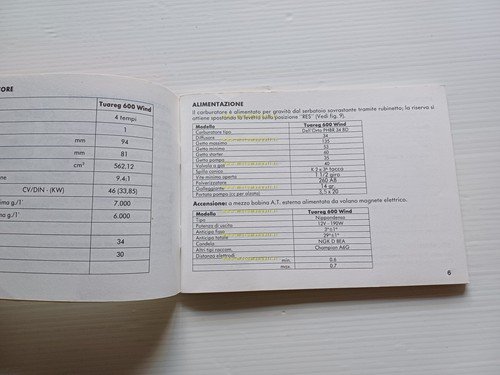 ORE
Tuareg 600 Wind
4 tempi
1
mm 94
mm 81
cm³ 562,12
ne 9.4:1
CV/DIN - (KW) 46 (33,85)
ima g./1' 7.000
g./1' 6.000
34
30
ALIMENTAZIONE
Il carburatore è alimentato per gravità dal serbatoio sovrastante tramite rubinetto; la riserva si
ottiene spostando la levetta sulla posizione "RES" (Vedi fig. 9).
Modello Tuareg 600 Wind
Carburatore tipo Dell'Orto PHBR 34 BD
Diffusore 34
Getto massimo 135
Getto minimo 53
Getto starter 60
Getto pompa 35
Valvola a gas 40
Spillo conico K 2 x 3ª tacca
Vite minimo aperta 1 1/2 giro
Polverizzatore 260 AB
Galleggiante 14 gr.
Portata pompa (cc per alzate) 3,5 x 20
Accensione: a mezzo bobina A.T. esterna alimentata da volano magnete elettrico.
Modello Tuareg 600 Wind
Tipo Nippondenso
Potenza di uscita 12V - 190W
Anticipo fisso 5°±1°
Anticipo totale 29°±1°
Candela NGK D 8EA
Altri tipi raccom. Champion A6G
Distanza elettrodi
min. 0.6
max. 0.7
6